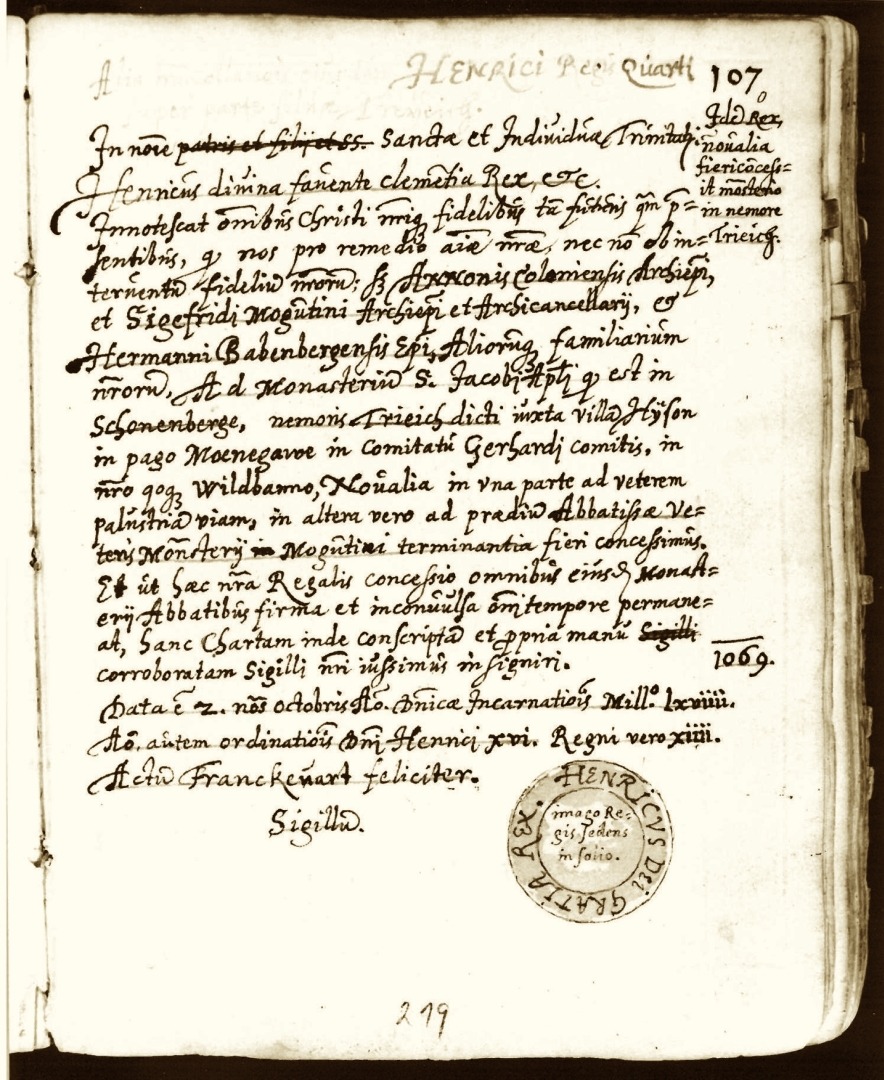 HENRICI Regis Quarti
107
Idē Rex,
novalia
fiericōcess=
it mōsterio
in nemore
Trieich.
In noīe patris et filij et SS. Sanctæ et Individuæ Trinitatis.
Henricus divina favente clemētia Rex, &c.
Innotescat oībus Christi nrīsq; fidelibus tā futuris qm̄ p=
sentibus, qꝫ nos pro remedio aīæ nr̄æ, nec nō ob in=
terventū fideliū nr̄orū: sꝫ Annonis Coloniensis Archiepī,
et Sigefridi Mogūtini Archiepī et Archicancellarij, &
Hermanni Babenbergensis Epī, Aliorūq; familiarium
nr̄orū, Ad Monasteriū S. Jacobi Apl̄i qꝫ est in
Schonenberge, nemoris Trieich dicti iuxta villā Hÿson
in pago Moenegawe in Comitatu Gerhardj comitis, in
nr̄o qoqꝫ Wildbanno, Novalia in vna parte ad veterem
palustriā viam, in altera vero ad prædiū Abbatissæ Ve=
teris Monsterij in Mogūtini terminantia fieri concessimus.
Et ut hæc nr̄a Regalis concessio omnibus eiusdē Monast=
erij Abbatibus firma et inconvulsa om̄i tempore permane=
at, hanc Chartam inde conscriptā et ꝓpria manū Sigilli
corroboratam Sigilli nr̄i iussimus insigniri.
1069.
Data ē 2. nōs Octobris Aō. Dn̄icæ Incarnatiōis Mill.º lxviiii.
Aō. autem ordinatiōis Dn̄j Henrici xvi. Regni vero xiiii.
Actū Franckenvart feliciter.
Sigillū.
HENRICVS DEI GRATIA REX.
imago Re=
gis sedens
in solio.
219